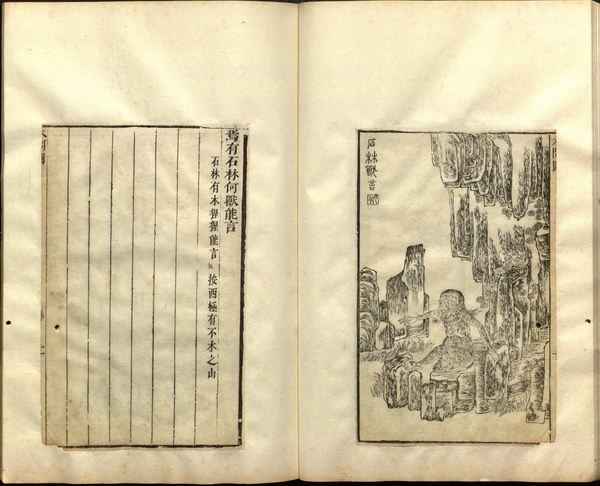 石林獸言
焉有石林何獸能言
石林有木猩猩能言 按西極有不木之山